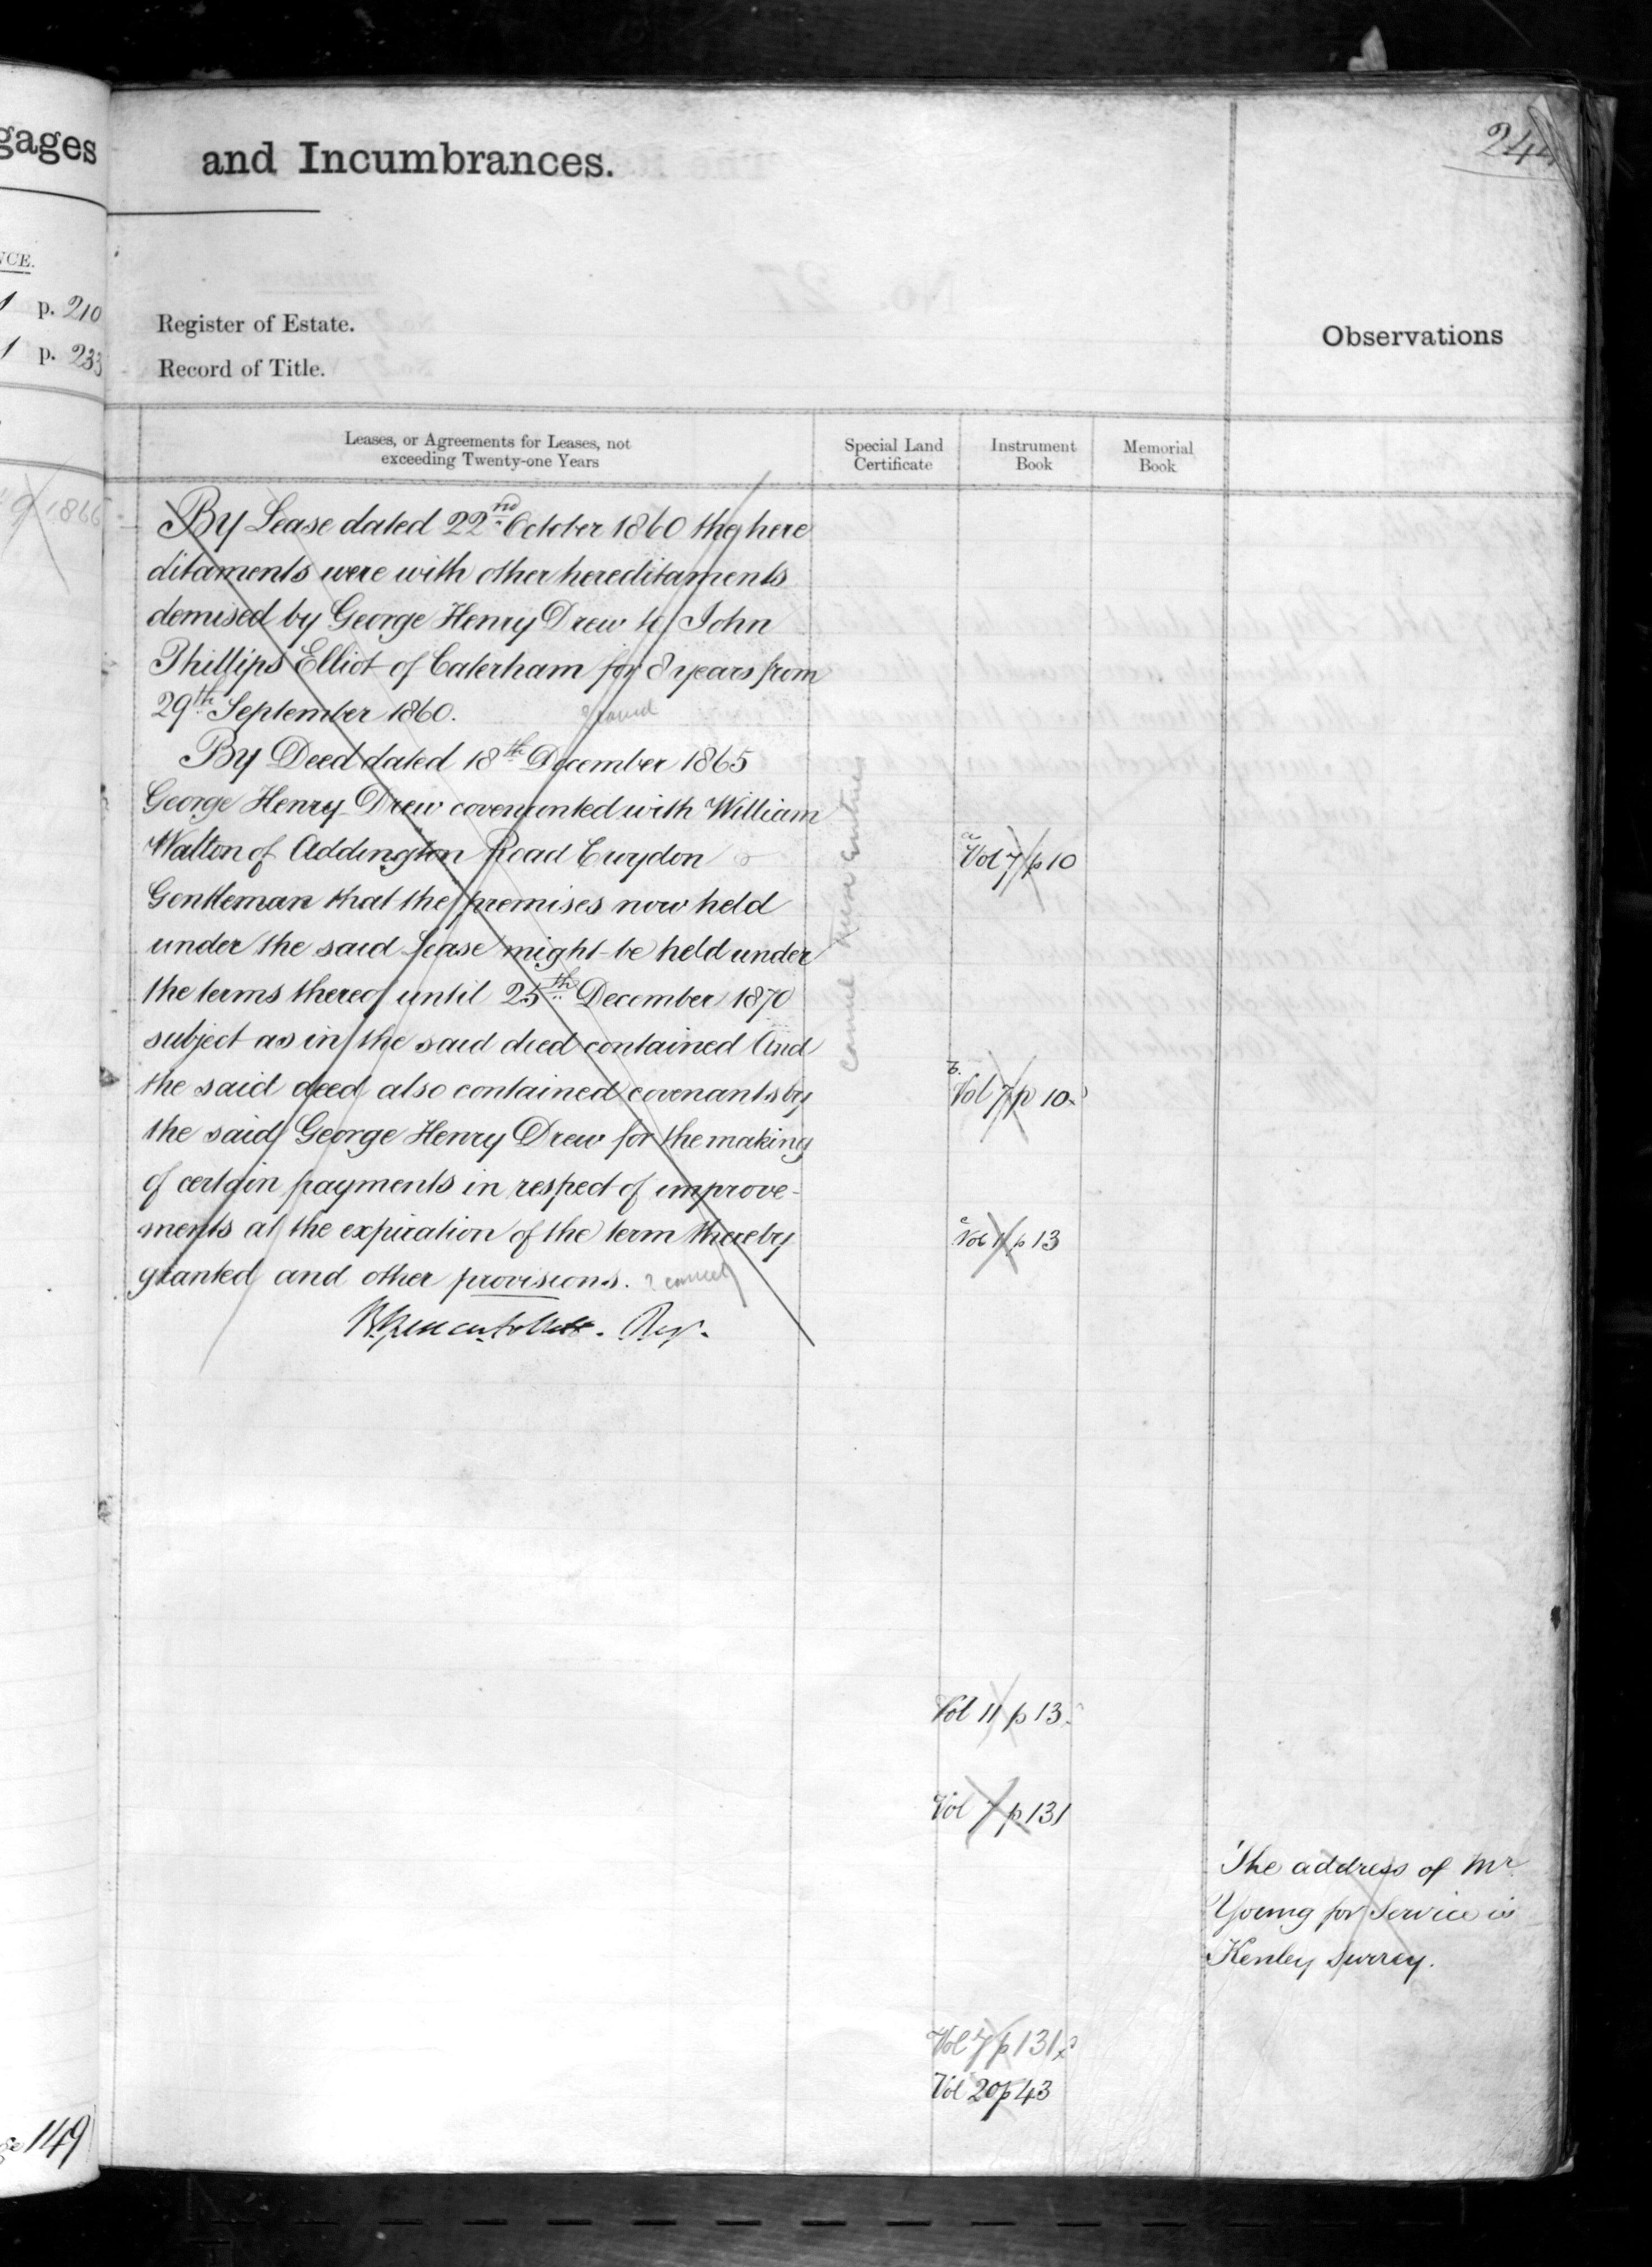 gages
and Incumbrances.
244
NCE.
1 p. 210
Register of Estate.
Observations
1 p. 233
Record of Title.
Leases, or Agreements for Leases, not
exceeding Twenty-one Years
Special Land
Certificate
Instrument
Book
Memorial
Book
1866
By Lease dated 22nd October 1860 the here
ditaments were with other hereditaments
demised by George Henry Drew to John
Phillips Elliot of Caterham for 8 years from
29th September 1860.
? cancel
By Deed dated 18th December 1865
George Henry Drew covenanted with William
Walton of Addington Road Croydon
Gentleman that the premises now held
under the said Lease might be held under
the terms thereof until 25th December 1870
subject as in the said deed contained And
the said deed also contained covenants by
the said George Henry Drew for the making
of certain payments in respect of improve-
ments at the expiration of the term thereby
granted and other provisions. ? cancel
Reg.
Cancel these Entries
a
Vol 7 p 10
b.
Vol 7 p 10
c
Vol 11 p 13
Vol 11 p 13
Vol 7 p 131
The address of Mr
Young for Service is
Kenley Surrey.
Vol 7 p 131
Vol 20 p 43
149